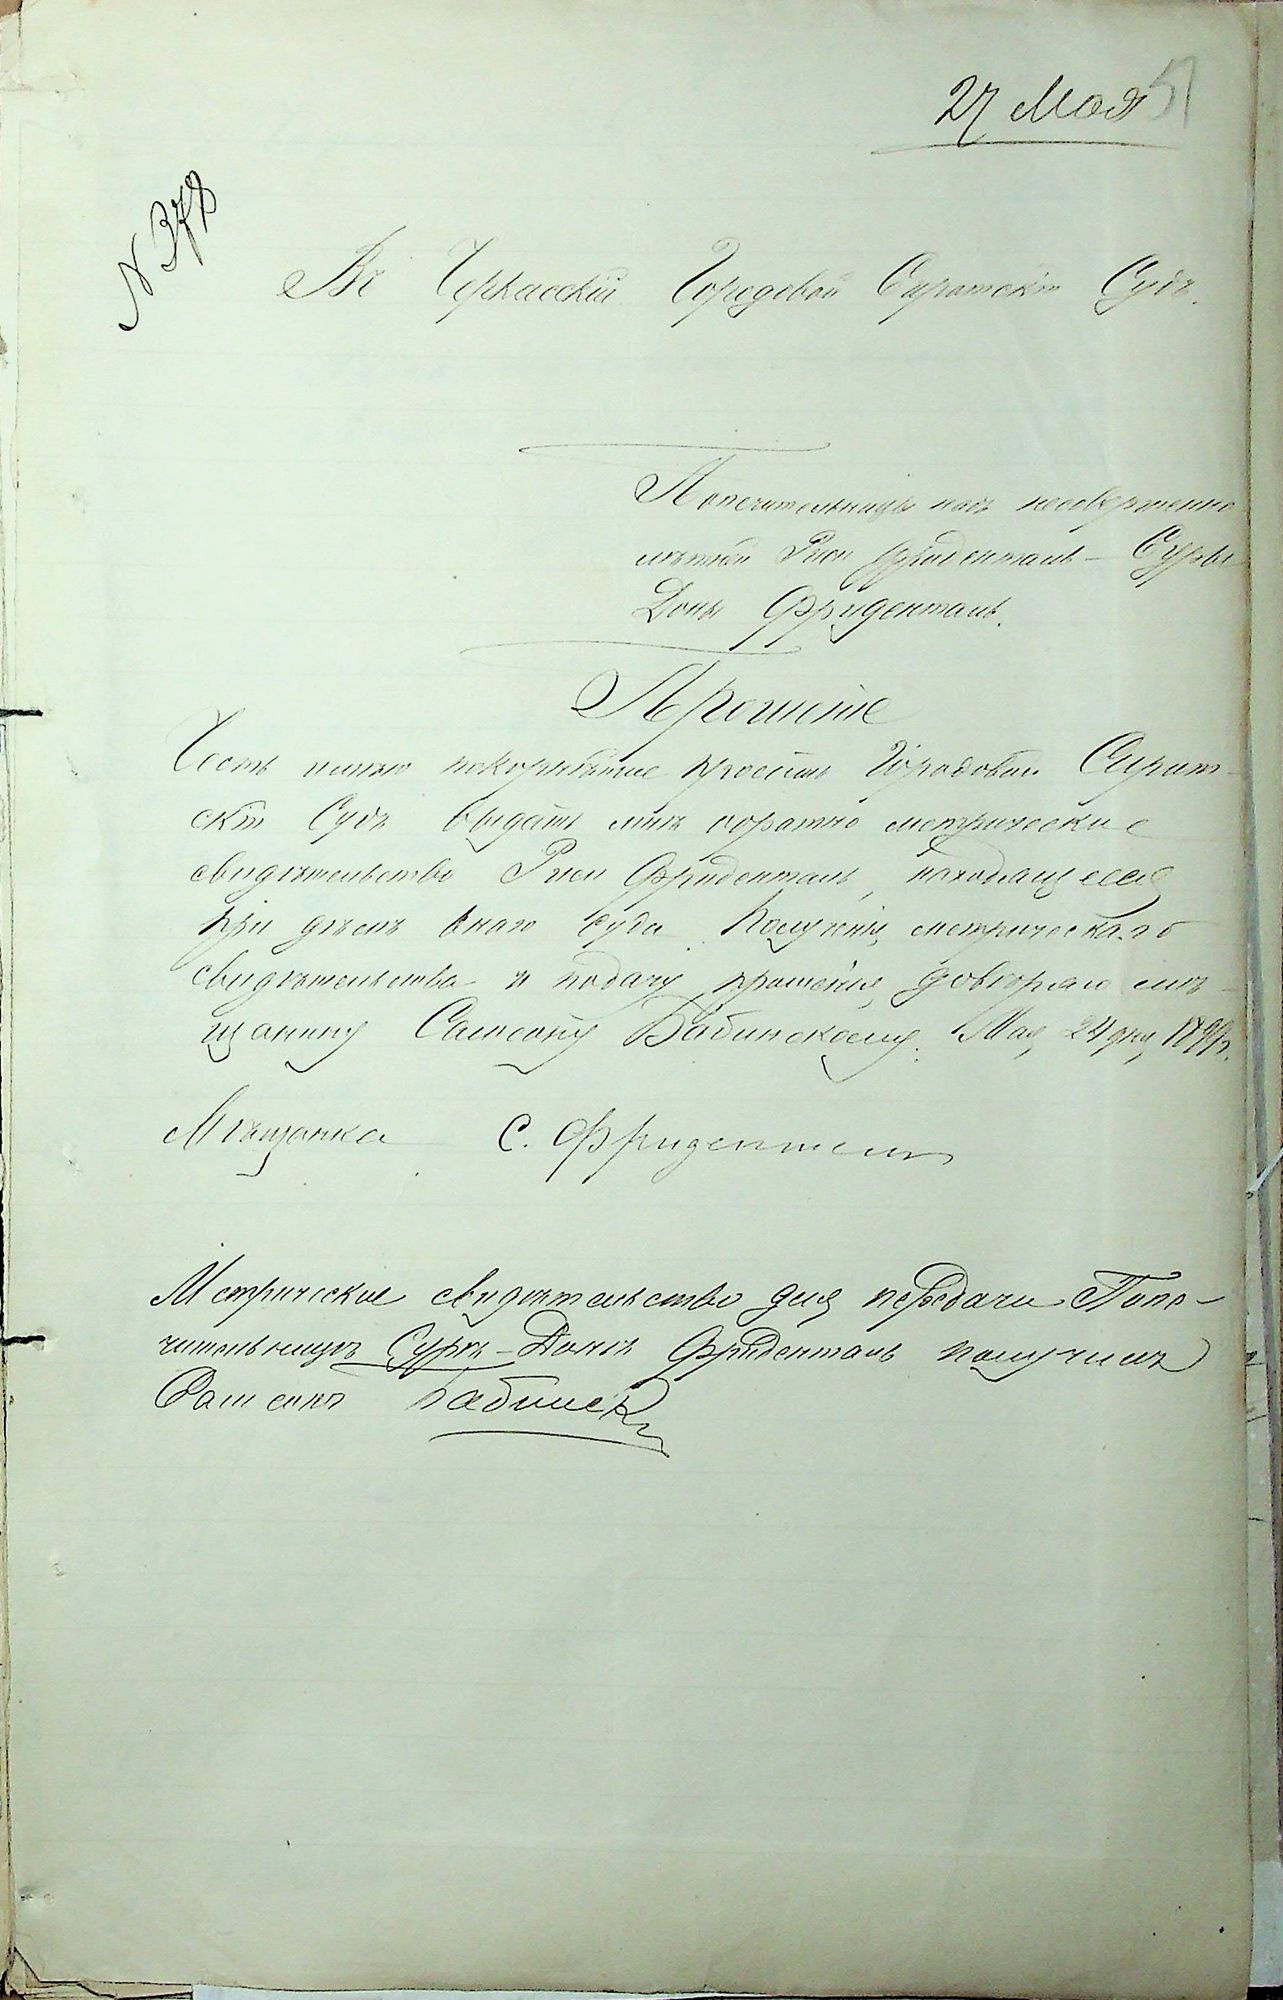 27 Мая
51
N 378
Въ Черкасскій Городовой Сиротскій Судъ.
Попечительницы надъ несовершенно
лѣтней Рисей Фриденталь – Суры
Доны Фриденталь.
Прошеніе
Честь имѣю покорнѣйше просить Городовой Сирот-
скій Судъ выдать мнѣ обратно метрическое
свидѣтельство Риси Фриденталь, находящееся
при дѣлѣ онаго суда. Полученіе метрическаго
свидѣтельства и подачу прошенія довѣряю мѣ-
щанину Самсону Бабинскому. Мая 24 дня
Мѣщанка С. Фриденталь
Метрическое свидѣтельство для передачи Попе-
чительницѣ Сурѣ-Донѣ Фриденталь получилъ
Самсонъ Бабинскій